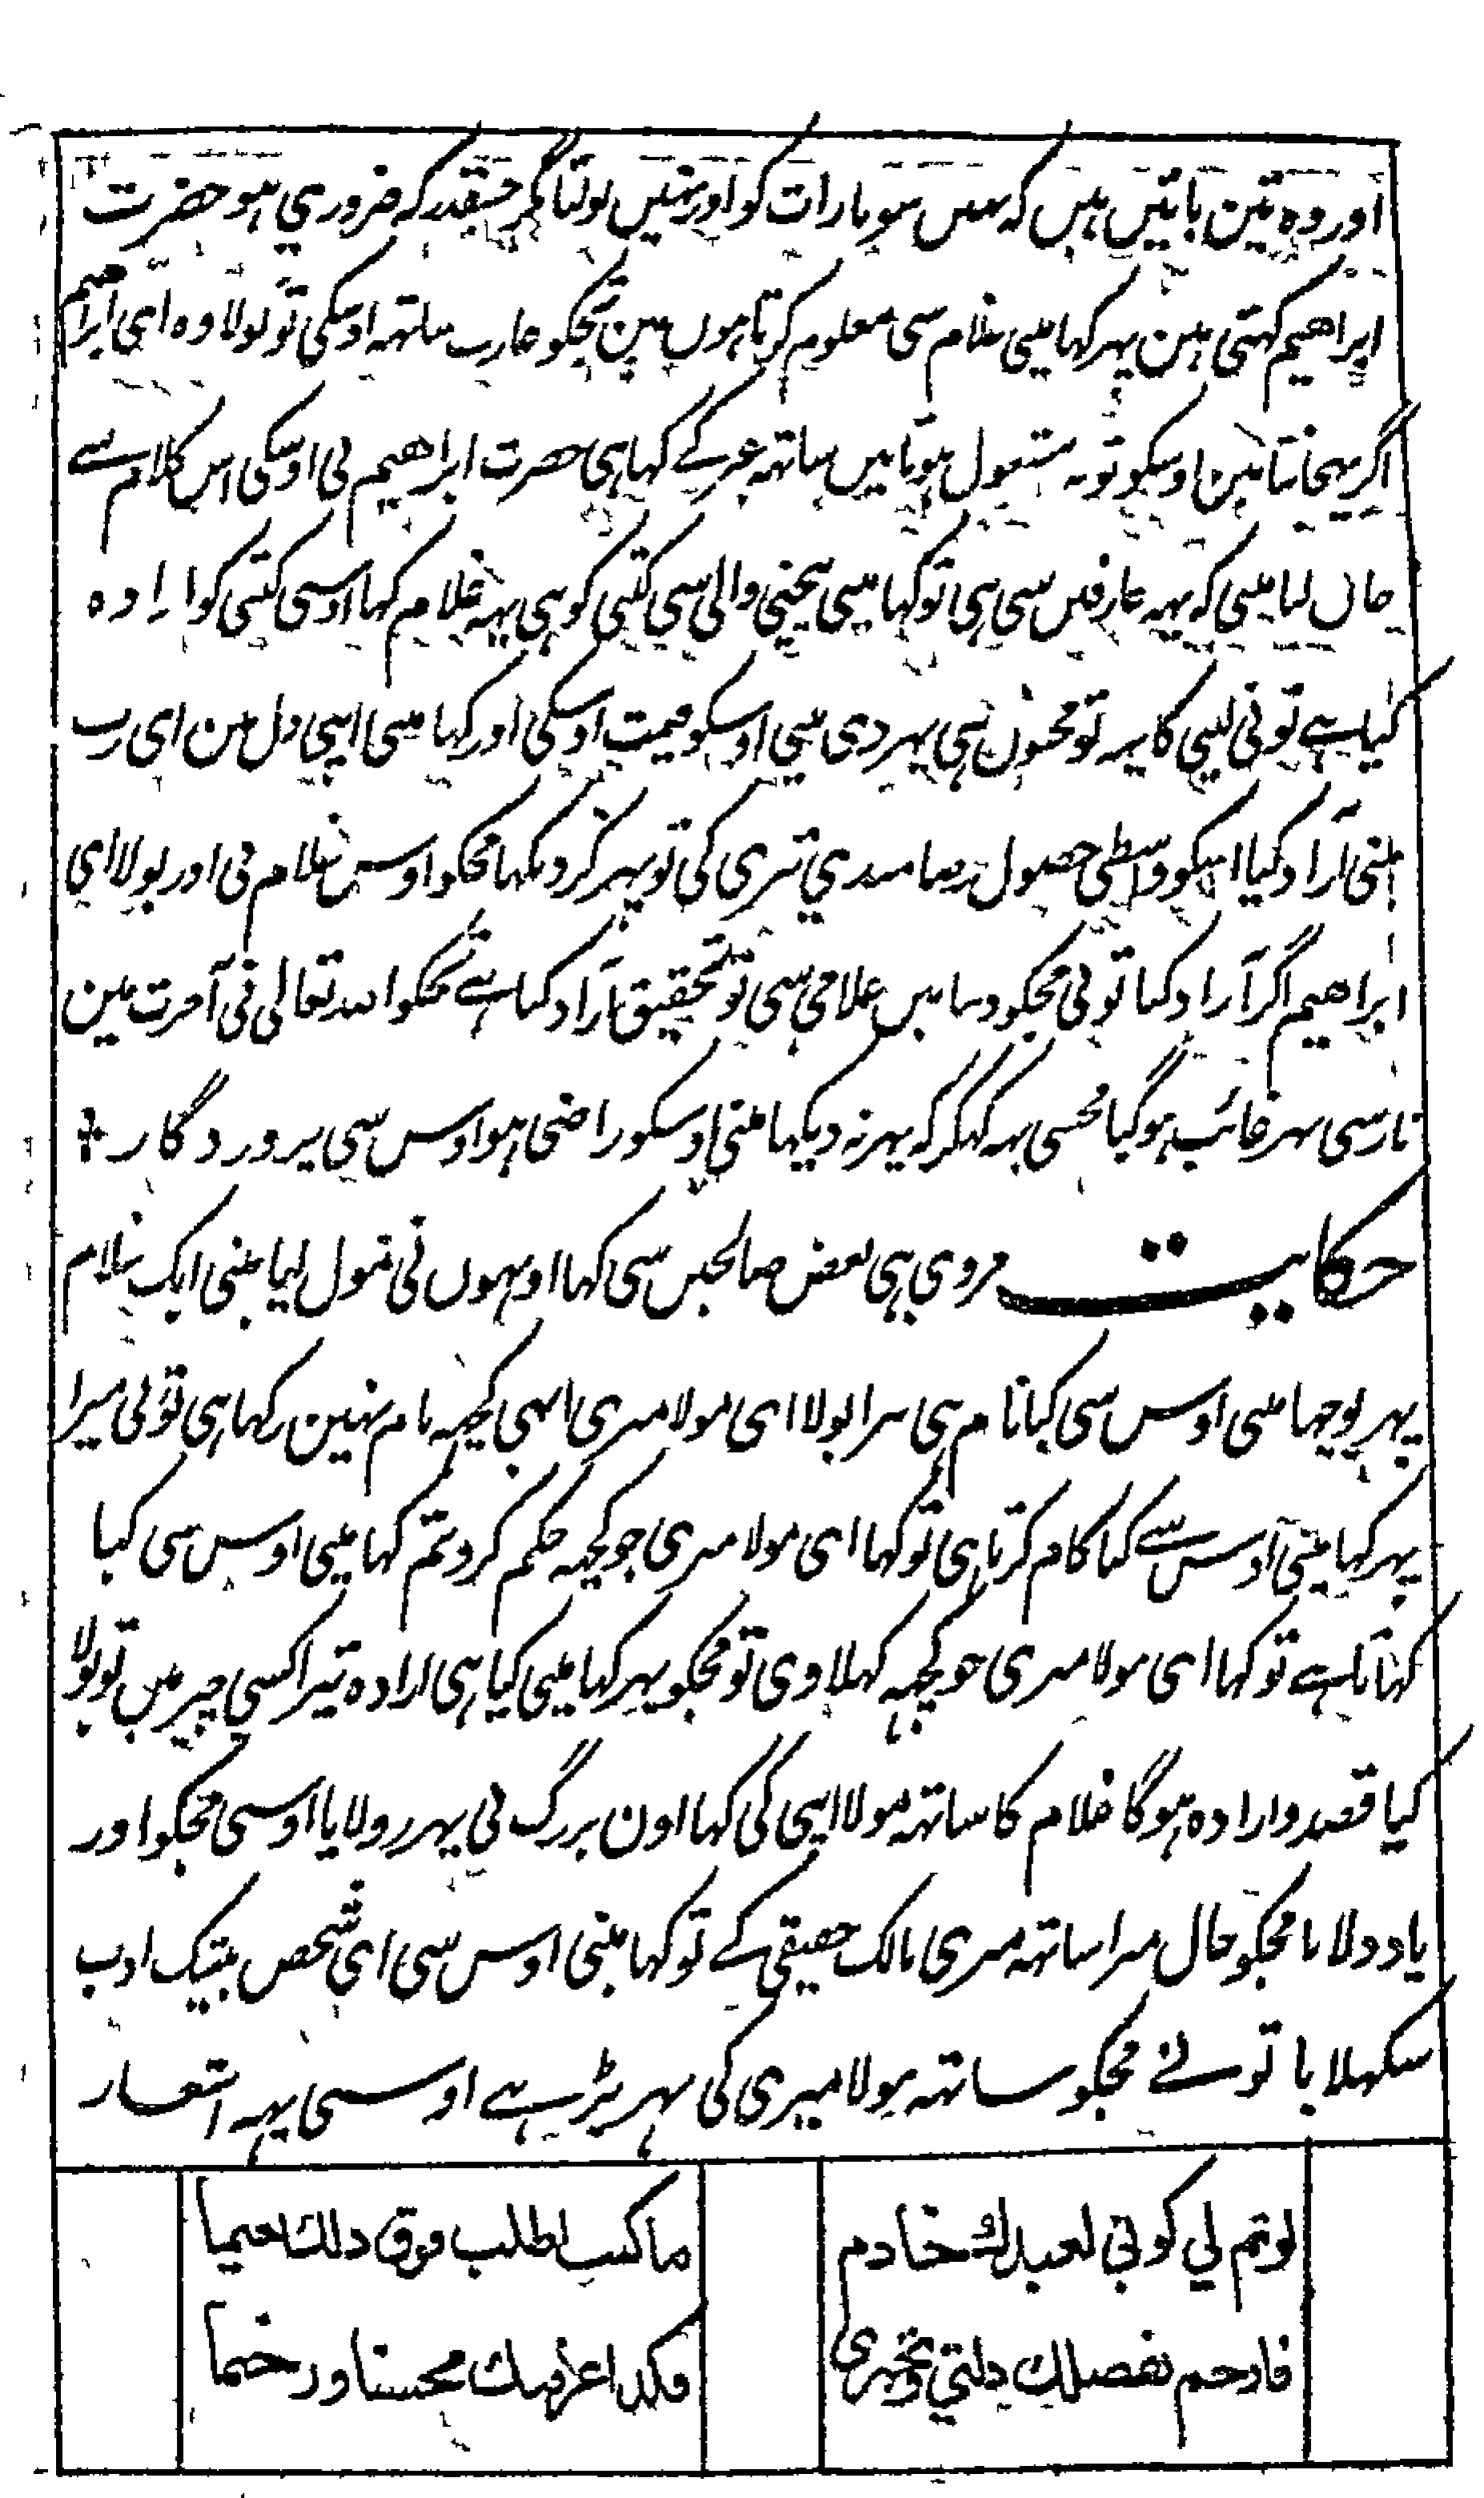 اور وہ تین باتیں ہیں کہ میں سوتا رات کو اور نہیں بولتا مگر جسقدر کہ ضروری ہو حضرت
ابراھیم کہتی ہین پہر کہا میی غلام سی معلوم کرتا ہوں مین تجکو عارب ساتہہ اوسکی تو بولا وہ ای ابراھیم
اگر پہچانتا مین اوسکو تو نہ مشغول ہوتا میں ساتہہ غیر کے کہا ہی حضرت ابراھیم نی اوسکی اس کلام سے
جان لیا میی کہ یہہ عارفیں سی ہی تو کہا میی بیچنی والی سی کتنی کو ہی یہہ غلام کہا اوسی کتنی کو ارادہ
کیا ہے تو نی لینی کا یہ تو مجنون ہی پہر دی میی اوسکو قیمت اوسکی اور کہا میی اپنی دل مین ای رب
مینی آزاد کیا اسکو واسطی حصول رضامندی تیری کی تو پہر کر دیکہا مجکو اوس غلام نی اور بولا ای
ابراھیم اگر آزاد کیا تو نی مجکو دنیا میں غلامی سی تو تحقیق آزاد کیا ہے تجکو اللہ تعالی نی آخرت مین
نار سی پہر غائب ہو گیا مجسی یہہ کہکر کہ پہر نہ دیکہا مینی اوسکو راضی ہو اوس سی پروردگار
حکایت مروی ہی بعض صالحین سی کہا اونہوں نی مول لیا مینی ایک غلام
پہر پوچہا میی اوس سی کیا نام ہی تیرا بولا ای مولا میری ابہی کچہہ نام نہین رکہا ہی تو نی میرا
پہر کہا مینی اوس سے کیا کام کرتا ہی تو کہا ای مولا میری جو کچہہ حکم کرو تم کہا میی اوس سی کیا
کہاتا ہے تو کہا ای مولا میری جو کچہہ کہلاوی تو مجکو پہر کہا میی کیا ہی ارادہ تیرا کسی چیز میں تو بولا
کیا قصد و ارادہ ہوگا غلام کا ساتہہ مولا اپنی کی کہا اون بزرگ نی پہر رولایا اوسی مجکو اور
یاد دلایا مجکو حال میرا ساتہہ میری مالک حقیقی کے تو کہا مینی اوس سی ای شخص بیشک ادب
سکہلایا تو نے مجکو ساتہہ مولا میری کی پہر پڑہے اوسی یہہ اشعار
لو تم لي كوني لعبدك خادم ما كنت اطلب فوق ذلك نعيما
فارحم بفضلك ذلتي وتحيري فلذا عرفتك محسنا ورحيما